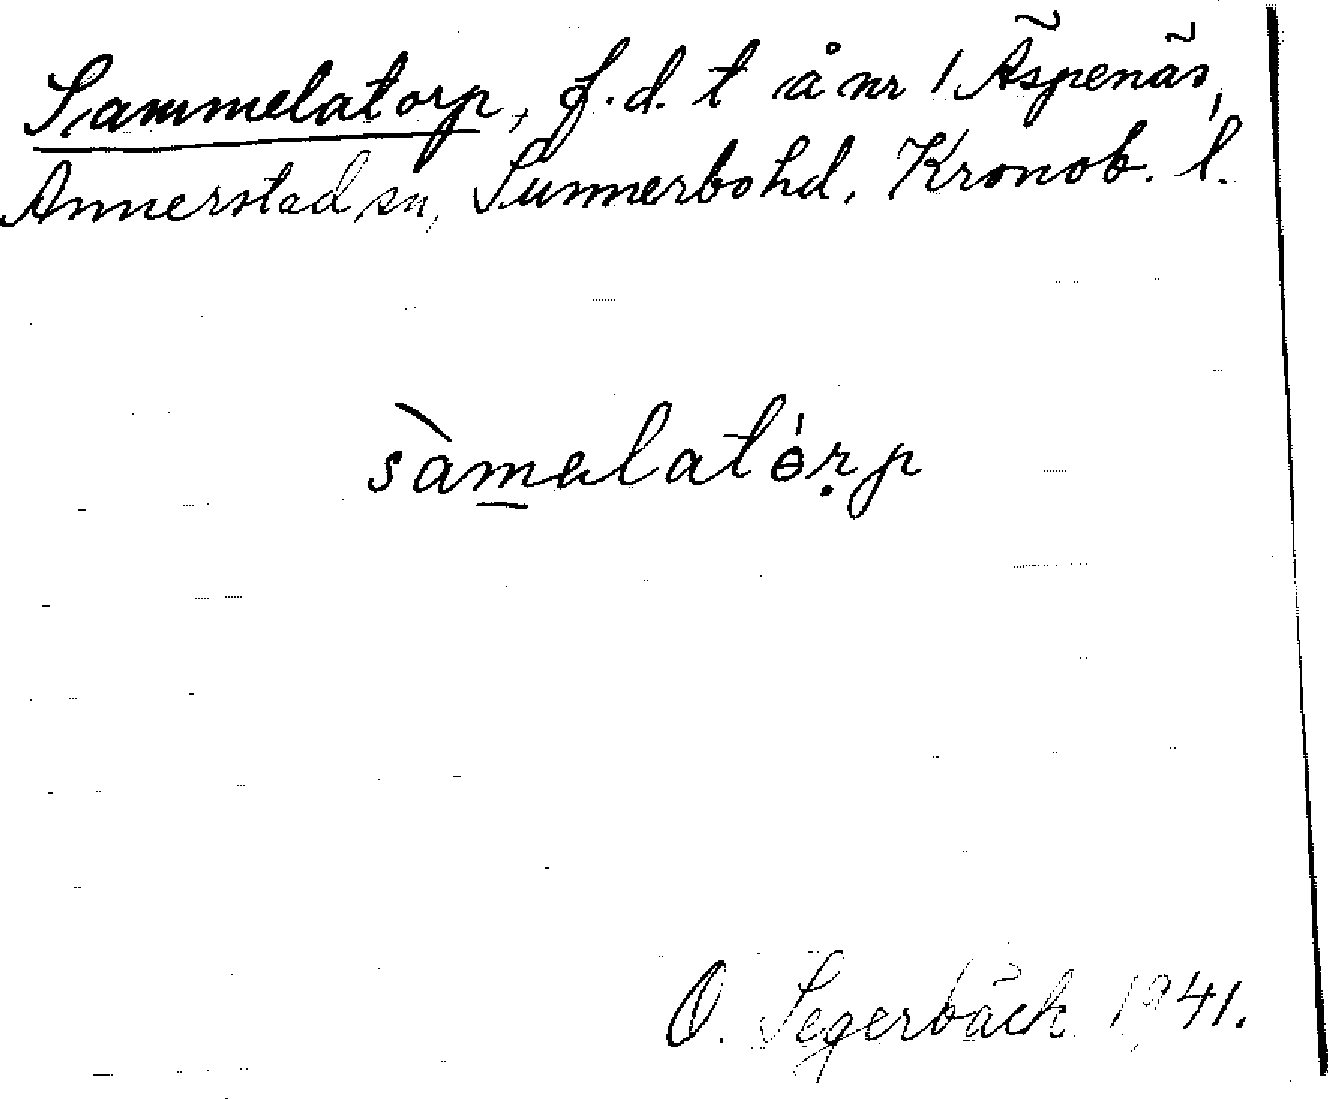 Sammelatorp, f.d. t å nr 1 Äspenäs,
Annerstad sn, Sunnerbo hd, Kronob. l.
sàmalatórp
O. Segerbäck 1941.